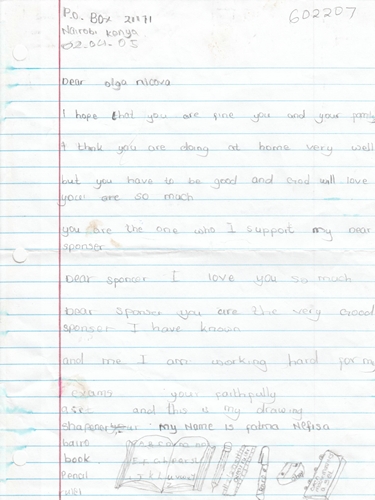 P.O. Box 20171
602207
Nairobi Kenya
02.04.05
Dear olga nicova
I hope that you are fine you and your family
I think you are doing at home very well
but you have to be good and God will love
your are so much
you are the one who I support my Dear
sponser
Dear sponcer I love you so much
Dear sponser you are the very Good
sponser I have known
and me I am working hard for my
exams your faithfully
and this is my drawing
Shapener my Name is Fatma Nefisa
bairo
book
Penal